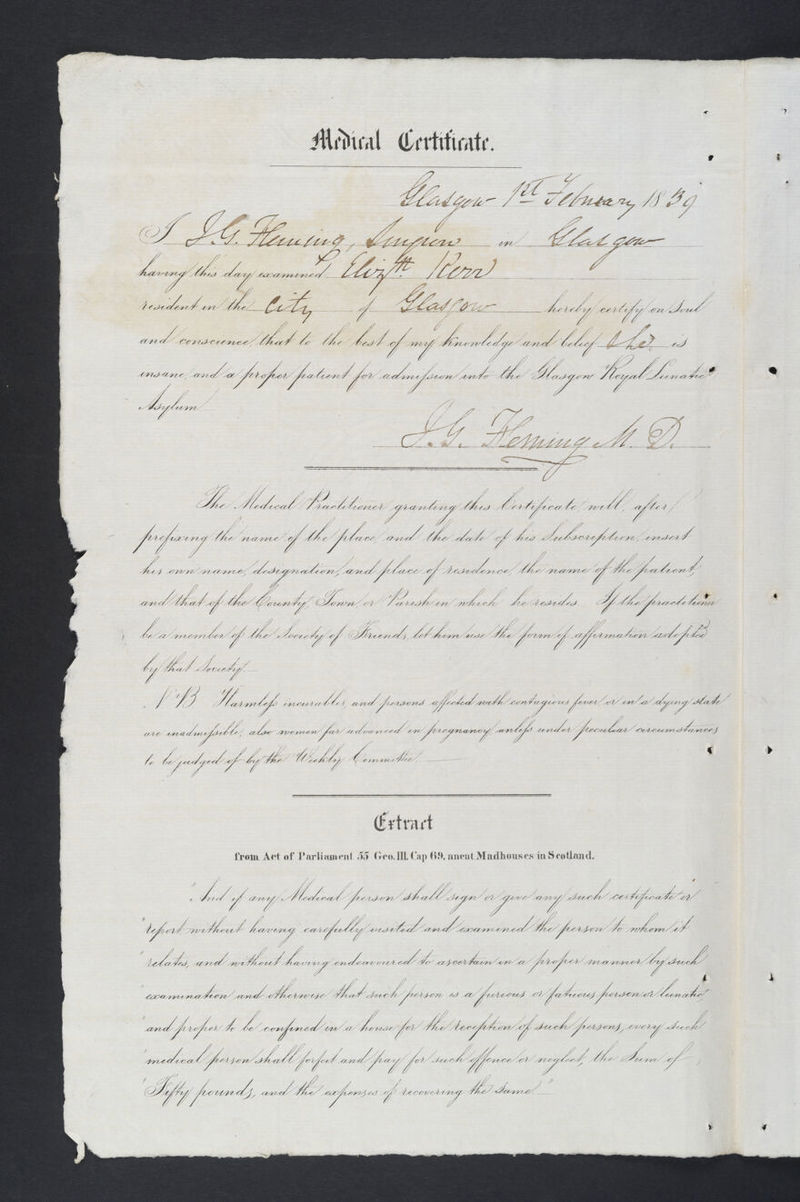 Medical Certificate.
Glasgow 1st February 1839
I J. G. Fleming, Surgeon in Glasgow
having this day examined Elizth Kerr
resident in the City of Glasgow hereby certify on Soul
and conscience that to the best of my knowledge and belief She is
insane, and a proper patient for admission into the Glasgow Royal Lunatic
Asylum
J. G. Fleming M. D.
The Medical Practitioner granting this Certificate will, after
prefixing the name of the place, and the date of his Subscription, insert
his own name, designation, and place of residence the name of the patient,
and that of the County, Town or Parish in which he resides. If the practitioner
be a member of the Society of Friends, let him use the form of affirmation adopted
by that Society.
N B Harmless incurables, and persons affected with contagious fever or in a dying state
are inadmissible, also women far advanced in pregnancy unless under peculiar circumstances
to be judged of by the Weekly Committee.
Extract
from Act of Parliament 55 Geo. III. Cap 69. anent Madhouses in Scotland.
"And if any Medical person shall sign or give any such certificate or
"report without having carefully visited and examined the person to whom it
"relates, and without having endeavoured to ascertain in a proper manner by such
"examination and otherwise that such person is a furious or fatuous person or lunatic
"and proper to be confined in a house for the reception of such persons, every such
"medical person shall forfeit and pay for such offence or neglect, the Sum of
"Fifty pounds, and the expenses of recovering the same"